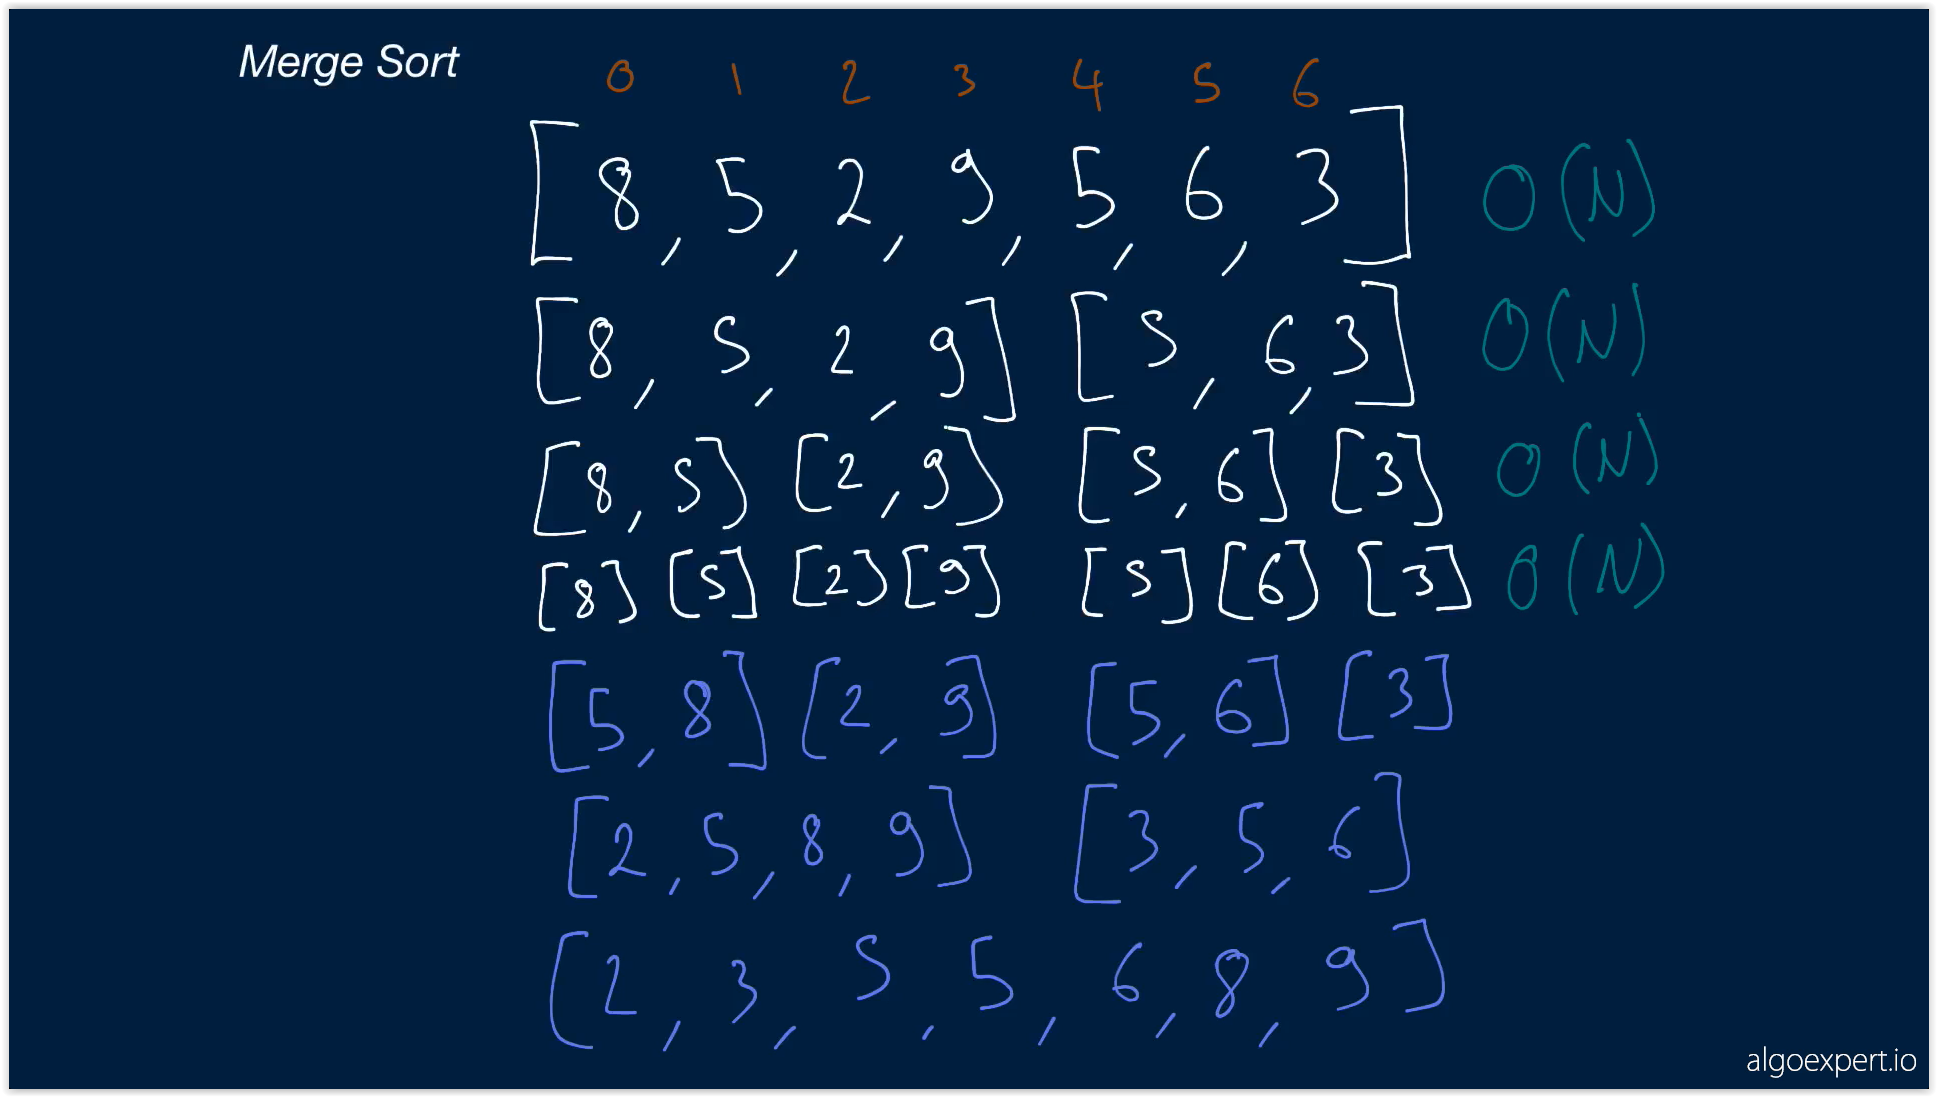 Merge Sort
0 1 2 3 4 5 6
[8, 5, 2, 9, 5, 6, 3] O(N)
[8, 5, 2, 9] [5, 6, 3] O(N)
[8, 5] [2, 9] [5, 6] [3] O(N)
[8] [5] [2] [9] [5] [6] [3] O(N)
[5, 8] [2, 9] [5, 6] [3]
[2, 5, 8, 9] [3, 5, 6]
[2, 3, 5, 5, 6, 8, 9]
algoexpert.io